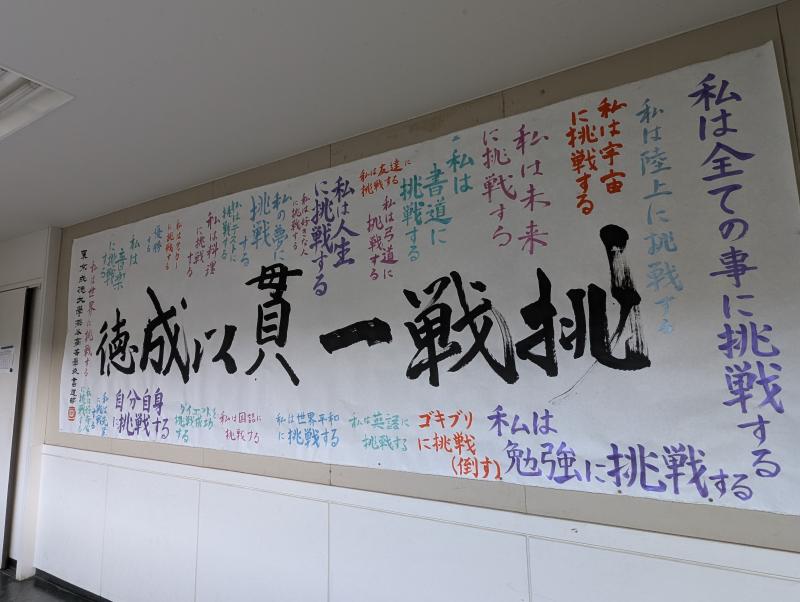 私は全ての事に挑戦する
私は陸上に挑戦する
私は宇宙
に挑戦する
私は未来
に挑戦する
私は
書道に
挑戦する
私は友達に
挑戦する
私は弓道に
挑戦する
私は人生
に挑戦する
私は好きな人
に挑戦する
私の夢に
挑戦
する
私はテストに
挑戦する
私は料理
に挑戦
する
優勝
する
私は
音楽
に挑戦
私は世界に挑戦する
挑戦一貫以成徳
私は
勉強に挑戦する
ゴキブリ
に挑戦
(倒す)
私は英語に
挑戦する
私は世界平和
に挑戦する
私は国語に
挑戦する
ダイエットを
挑戦成功
する
自分自身
に挑戦する
東京成徳大學深谷高等學校書道部